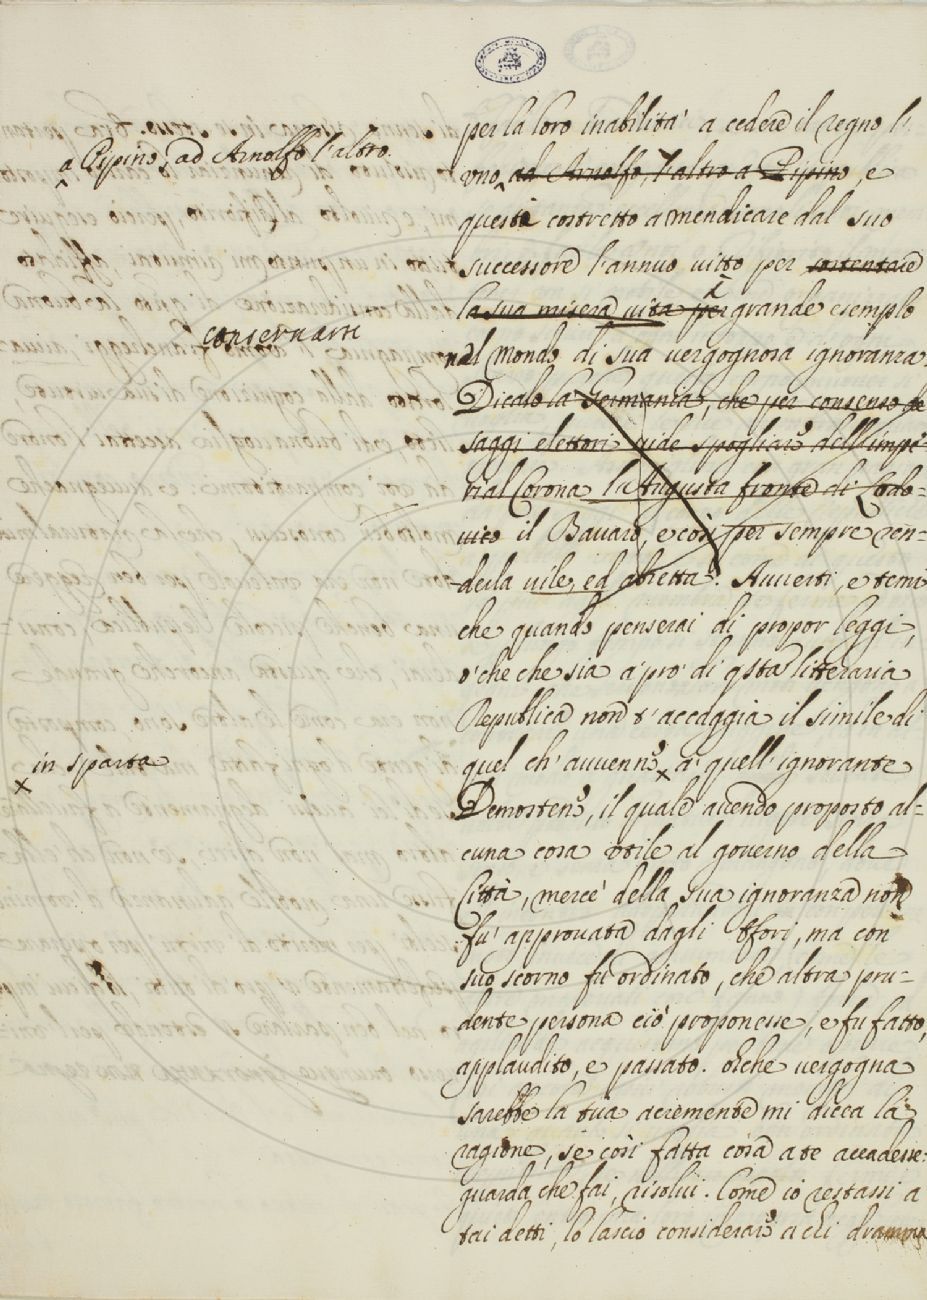 a Pipino, ad Arnolfo l'altro.
conservarsi
x in sparta
per la loro inabilità a cedere il regno l'
uno, ad Arnolfo, l'altro a Pipino, e
questi costretto a mendicare dal suo
successore l'annuo vitto per sostentare
la sua misera vita per grande esemplo
al mondo di sua vergognosa ignoranza.
Dicalo la Germania, che per consenso de
saggi elettori vide spogliare dell'impe-
rial Corona l'Augusta fronte di Lodo-
vico il Bavaro, e così per sempre ren-
derla vile, ed abietta. Avverti, e temi
che quando penserai di propor leggi,
o' che che sia a' pro' di qsta litteraria
Republica non t' accaggia il simile di
quel ch' avvenne x a' quell' ignorante
Demostene, il quale avendo proposto al-
cuna cosa utile al governo della
Città, mercè della sua ignoranza non
fu' approvata dagli Efori, ma con
suo scorno fu ordinato, che altra pru-
dente persona ciò proponesse, e fu fatto,
applaudito, e passato. Oh che vergogna
sarebbe la tua acremente mi dicea la
ragione, se così fatta cosa a te accadesse:
guarda che fai, risolvi. Come io restassi a
tai detti, lo lascio considerare a chi dramma